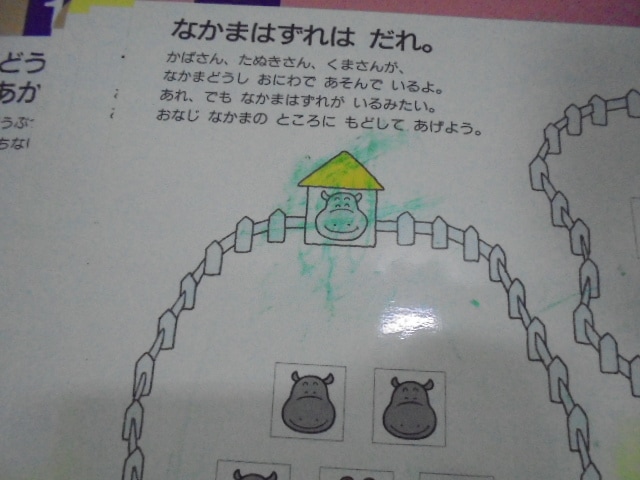 なかまはずれは だれ。
かばさん、たぬきさん、くまさんが、
なかまどうし おにわで あそんで いるよ。
あれ、でも なかまはずれが いるみたい。
おなじ なかまの ところに もどして あげよう。
どう
あか
うぶ
ちない